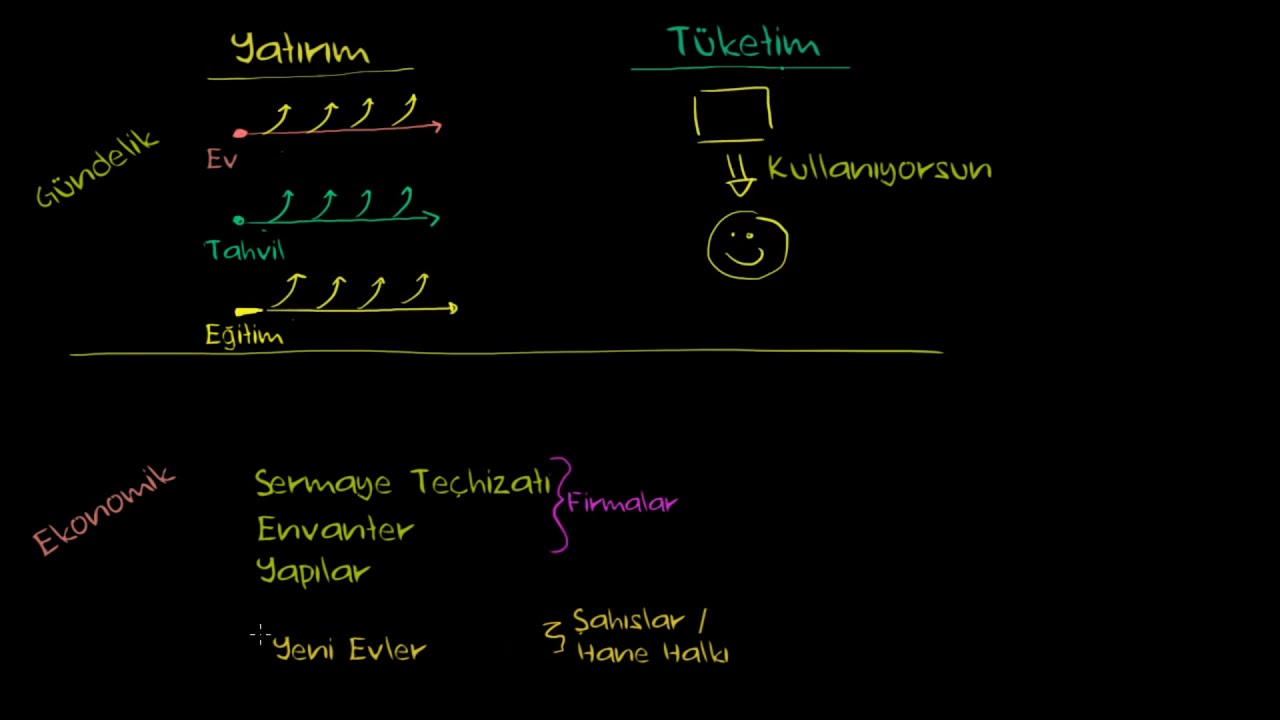 Yatırım
Tüketim
Gündelik
Ev
Kullanıyorsun
Tahvil
Eğitim
Ekonomik
Sermaye Teçhizatı
Firmalar
Envanter
Yapılar
Şahıslar /
Yeni Evler
Hane Halkı